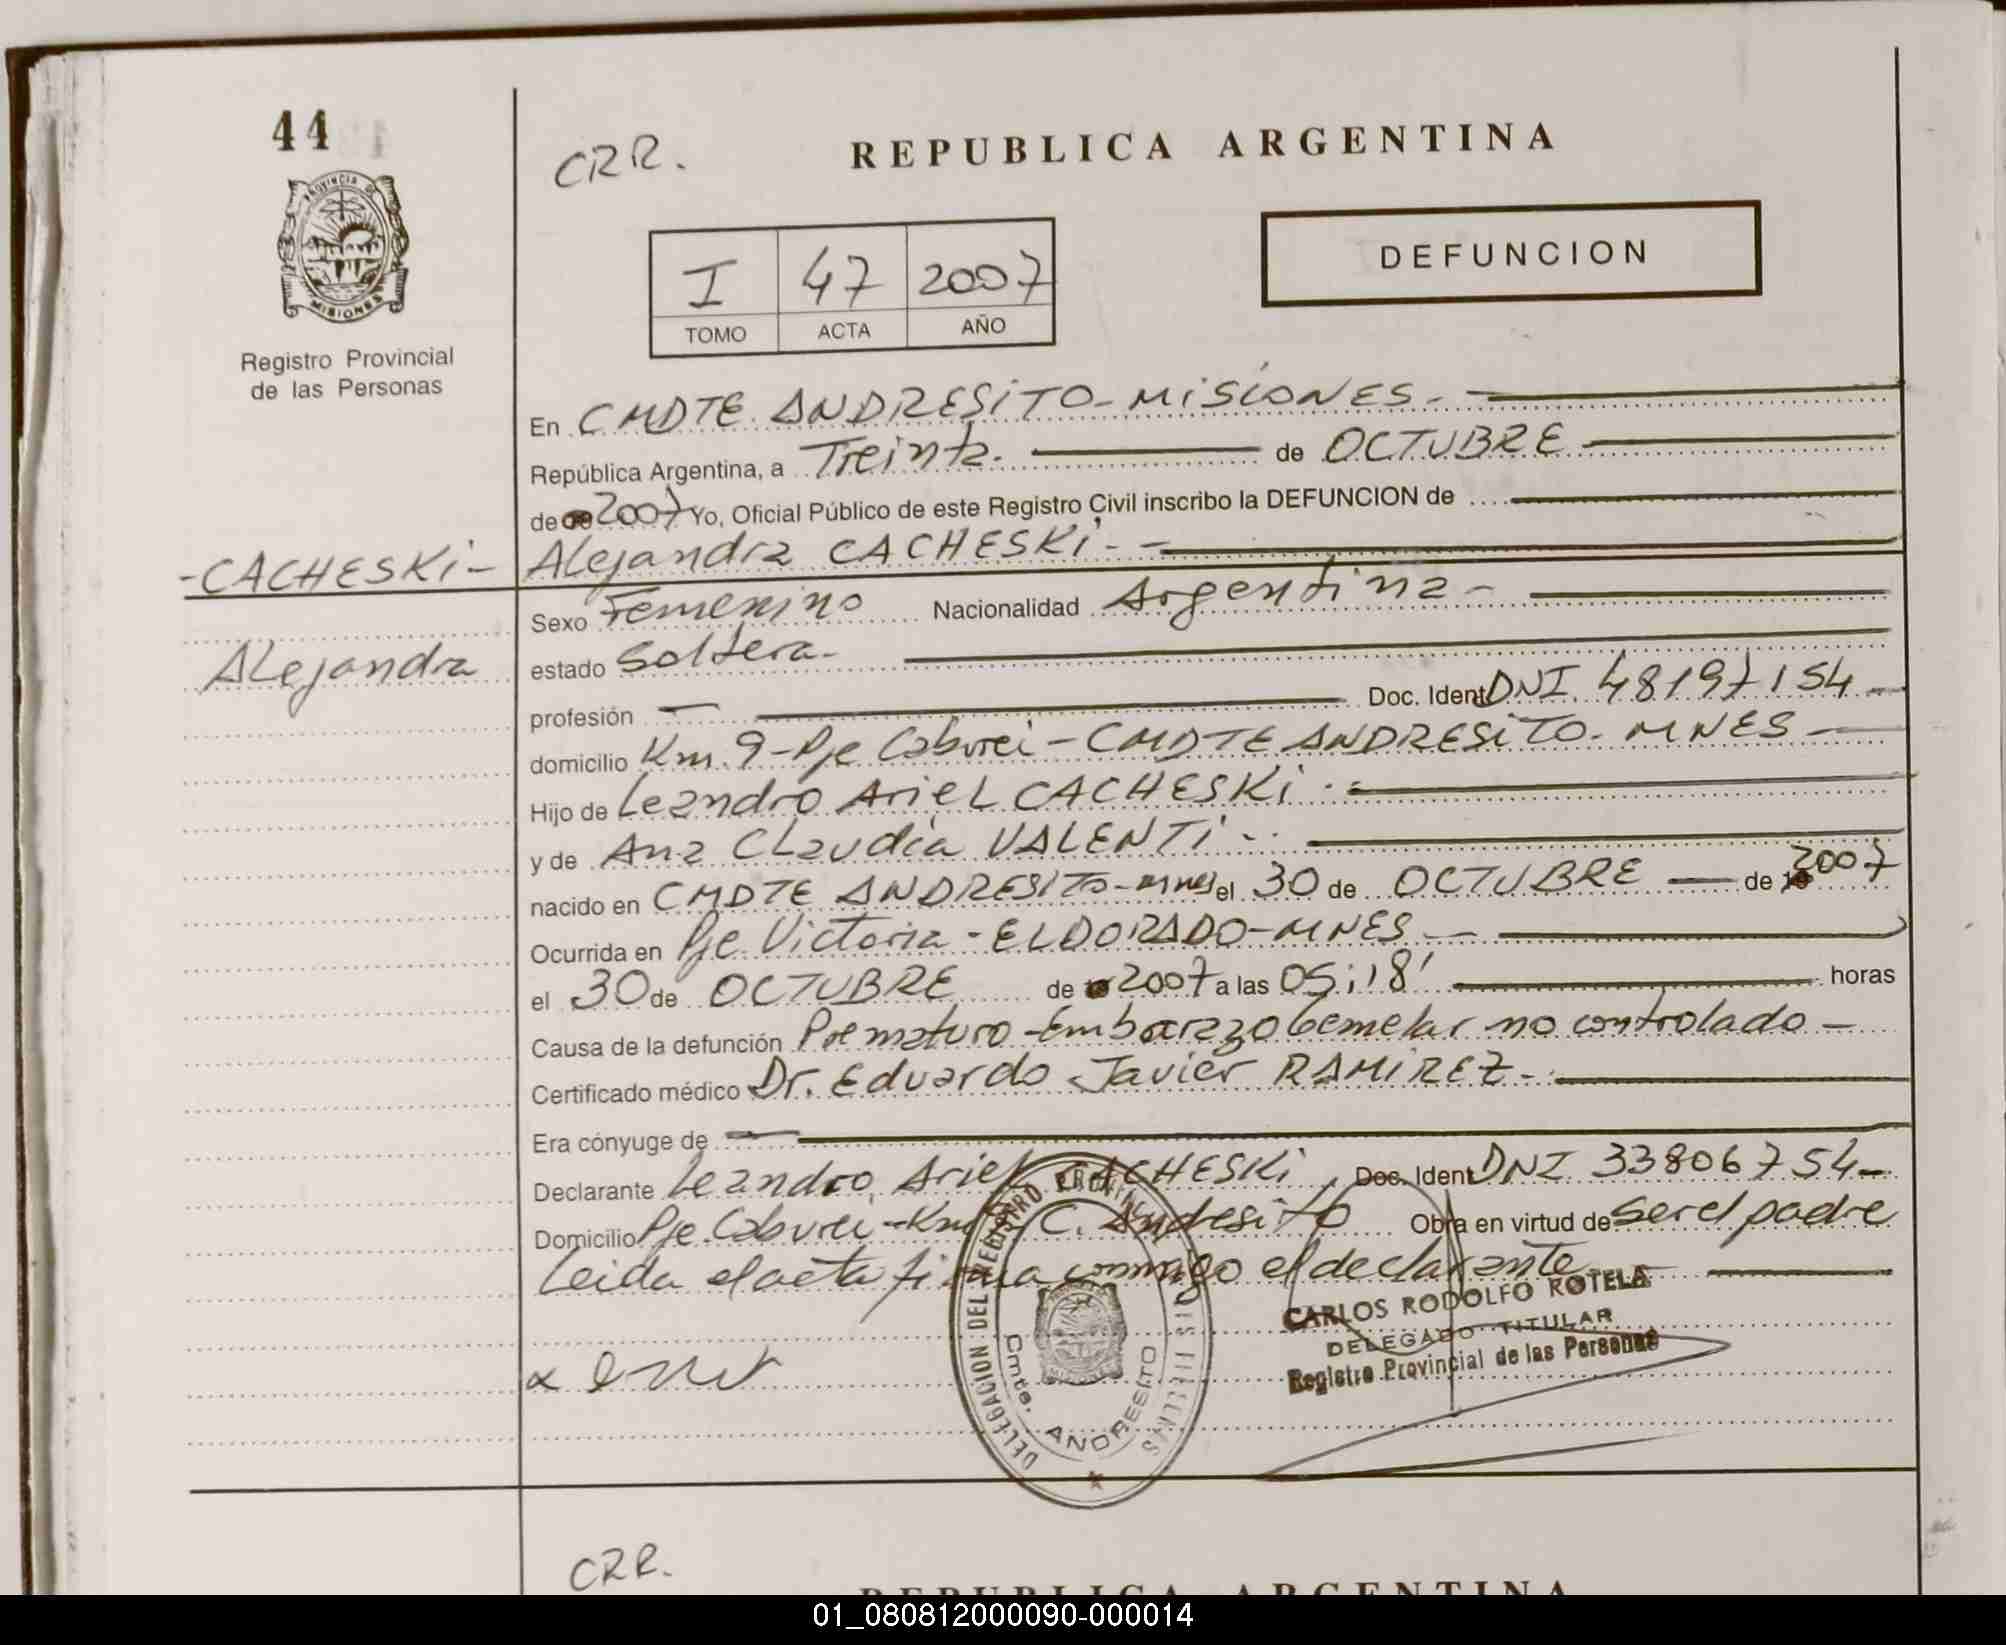 44
CRR.
REPUBLICA ARGENTINA
PROVINCIA DE
MISIONES
Registro Provincial
de las Personas
I 47 2007
TOMO ACTA AÑO
DEFUNCION
En CMDTE ANDRESiTO-MiSiONES.-
República Argentina, a Treinta. de OCTUBRE
de 2007 Yo, Oficial Público de este Registro Civil inscribo la DEFUNCION de
-CACHESKi- Alejandra CACHESKi.-
Alejandra
Sexo Femenino Nacionalidad Argentina-
estado Soltera-
profesión — Doc. Ident DNI 48197154-
domicilio Km. 9-Pje Caburei-CMDTE ANDRESiTO-MNES-
Hijo de Leandro Ariel CACHESKi.-
y de Ana Claudia VALENTi-
nacido en CMDTE ANDRESITO-mnes el 30 de OCTUBRE — de 2007
Ocurrida en Pje Victoria-ELDORADO-MNES-
el 30 de OCTUBRE de 2007 a las 05:18' horas
Causa de la defunción Prematuro-Embarazo Gemelar no controlado-
Certificado médico Dr. Eduardo Javier RAMiREZ-.
Era cónyuge de —
Declarante Leandro Ariel CACHESKi, Doc. Ident DNI 33806754-
Domicilio Pje Caburei-Km 9 C. Andresito Obra en virtud de ser el padre
Leida el acta firma conmigo el declarante
CARLOS RODOLFO ROTELA
DELEGADO TITULAR
Registro Provincial de las Personas
DELEGACION DEL REGISTRO PROVINCIAL
Cmte. ANDRESITO
CRR.
REPUBLICA ARGENTINA
01_080812000090-000014